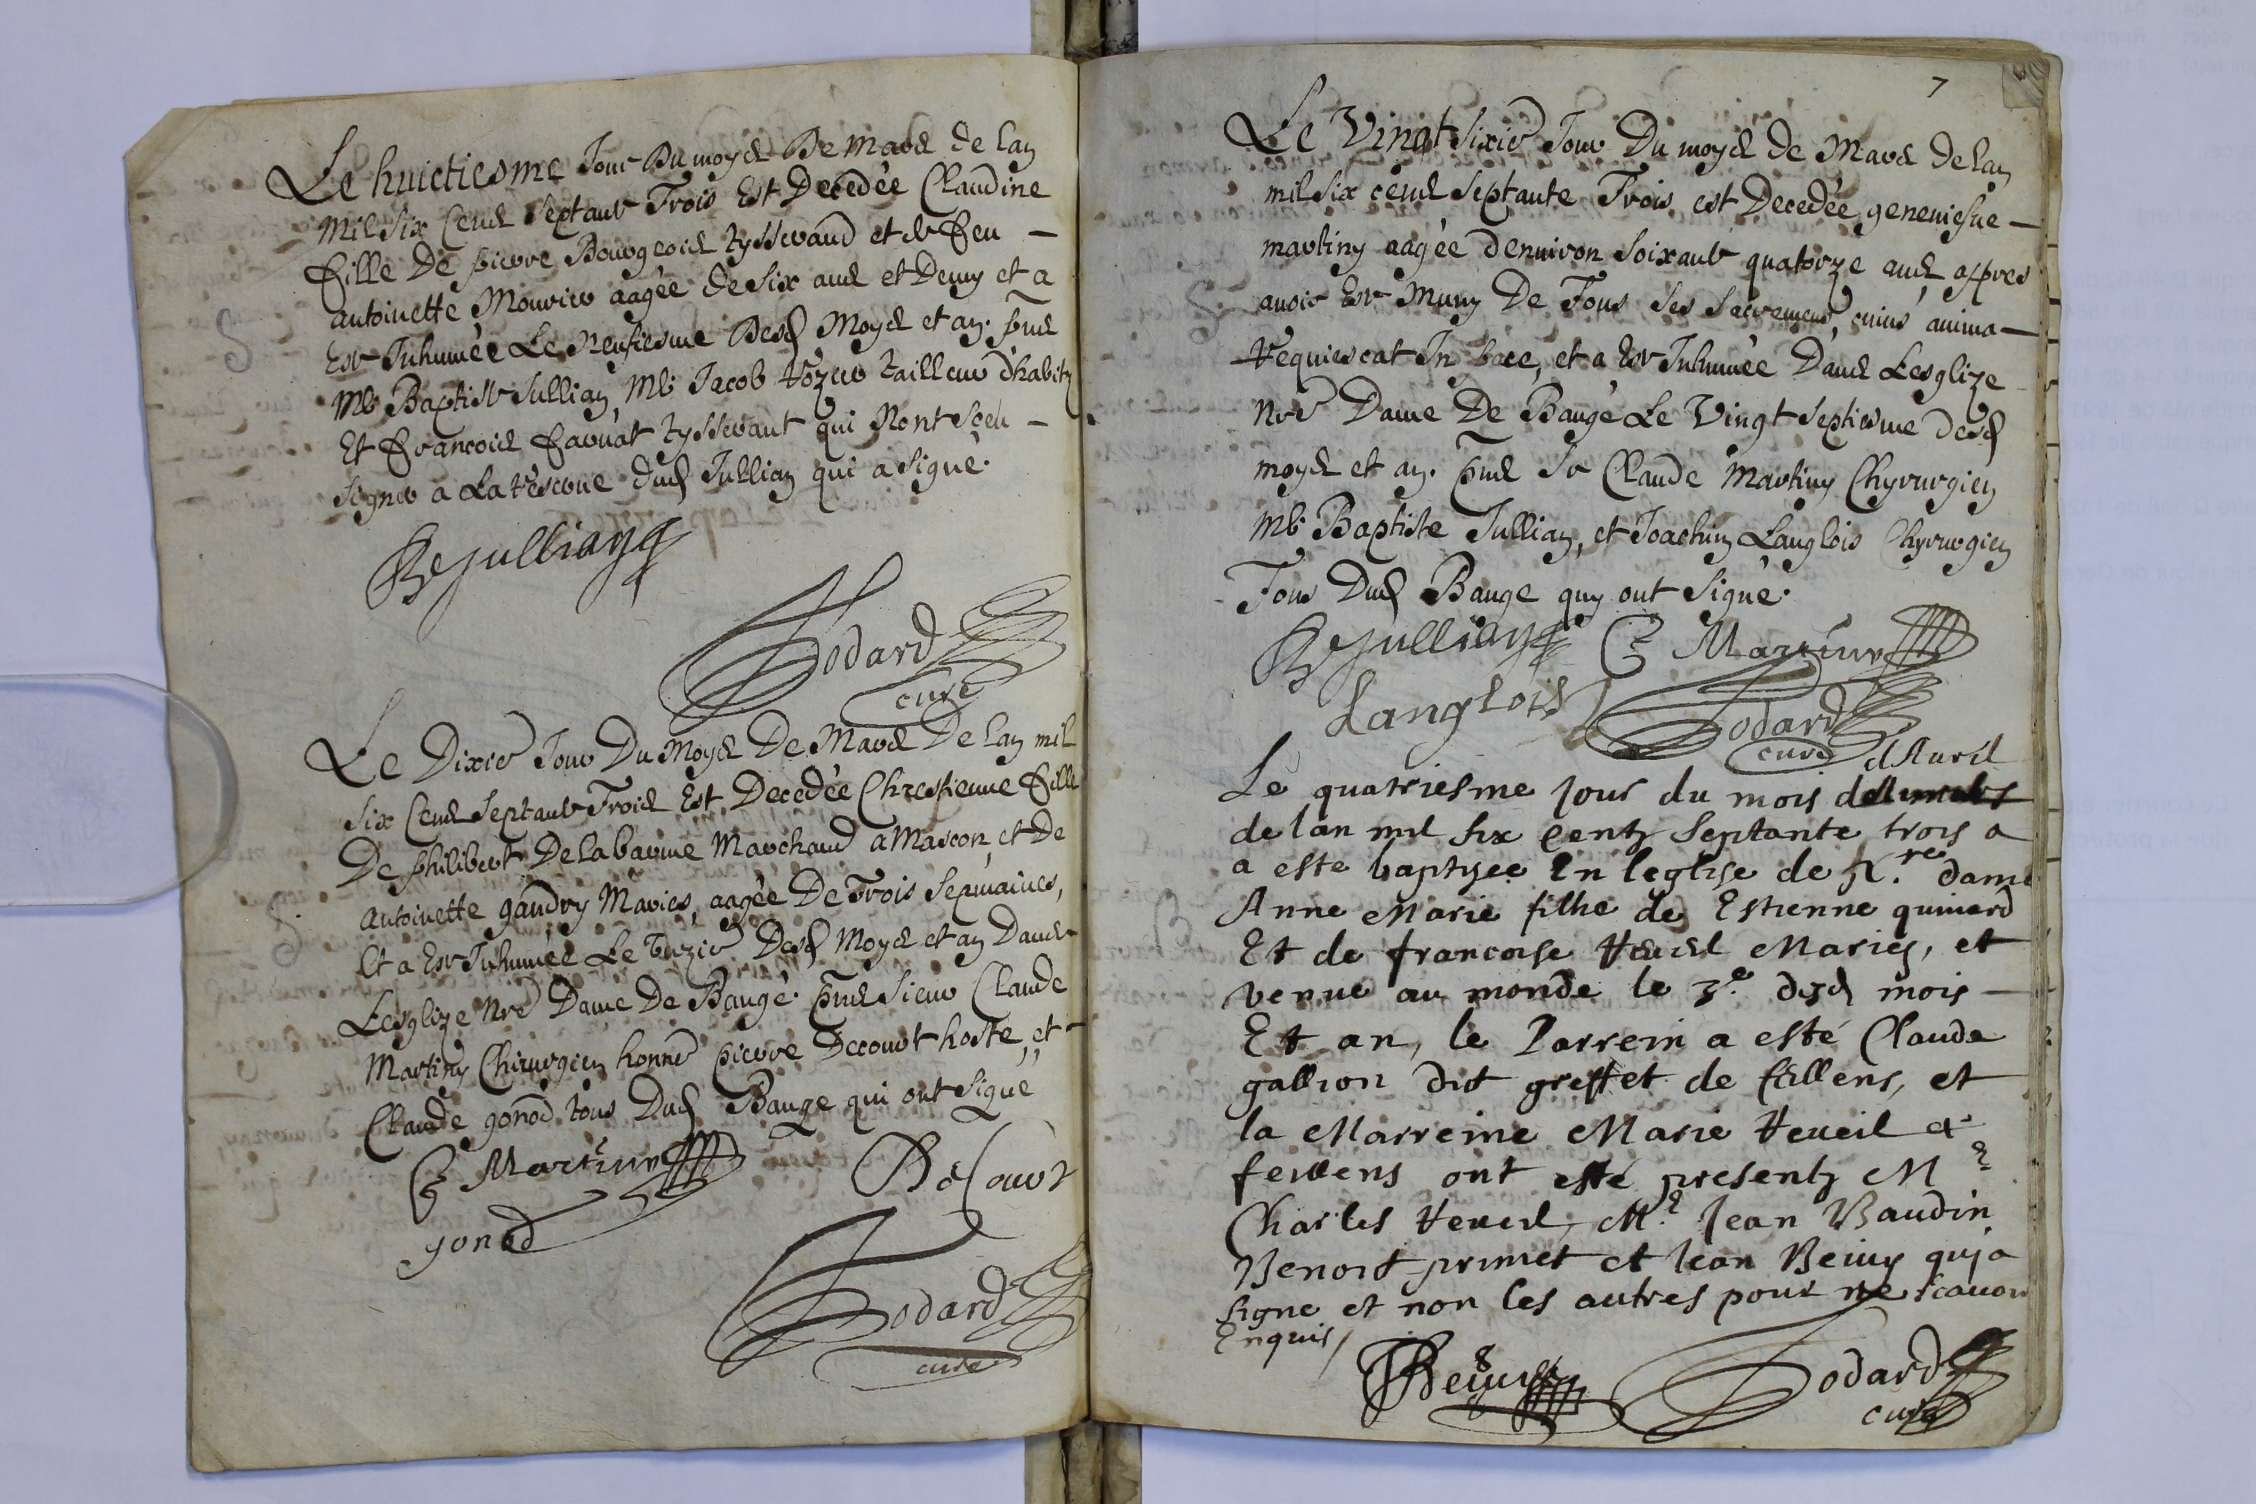 Le huictiesme Jour Du moys De mars de lan
mil six Cens septante Trois Est Decedée Claudine
fille De pierre Bourgeois tysserand et de feu
antoinette Mourier aagée de six ans et Demy et a
Esté Inhumée Le Neufiesme Desd Moys et an. pnts
Me Baptiste Jullian, Me Jacob Rozier tailleur d'habitz
Et francois favrat tysserant qui Nont sceu
signer a La reserve dud Jullian qui a signé.
B Jullian
Godard
curé
Le Dixie Jour Du Moys De Mars De lan mil
six Cens septante Trois Est Decedée Chrestienne fille
De philibert Delabarme Marchand a Mascon, et De
antoinette gaudry Mariés, aagée De Trois sepmaines,
Et a Esté Inhumée Le Unzie Desd Moys et an Dans
Lesglize nre Dame De Baugé. pnts sieur Claude
Martiny Chirurgien honne pierre Decourt hoste, et
Claude gonod tous Dud Bauge qui ont signé
C Martiny
Decourt
gonod
Godard
curé
7
Le Vingt sixie Jour Du moys de Mars de lan
mil six cens septante Trois est Decedée geneniefue
martiny aagée denuiron soixante quatorze ans apres
auoir Esté Muny De Tous ses sacremens, cuius anima
requiescat In pace, et a Esté Inhumée Dans Lesglize
nre Dame De Baugé Le Vingt septiesme desd
moys et an. pnts sr Claude Martiny Chyrurgien
Me Baptiste Jullian, et Joachim Langlois Chyrurgien
Tous Dud Bauge quy ont signé.
B Jullian C Martiny
Langlois Godard
curé
dAuril
Le quatriesme Jour du mois
de lan mil six centz septante trois a
a este baptisee En leglise de N.re dame
Anne Marie filhe de Estienne quinard
Et de francoise Reveil Mariés, et
venue au monde le 3e. desd mois
Et an, le Parrein a esté Claude
gallion dit greffet de feillens, et
la Marreine Marie Reveil de
feillens ont esté presentz Me
Charles Reveil, Me Jean Baudin
Benoist primet et Jean Beiuy qui a
signe et non les autres pour ne scauoir
Enquis
Beiuy
Godard
curé